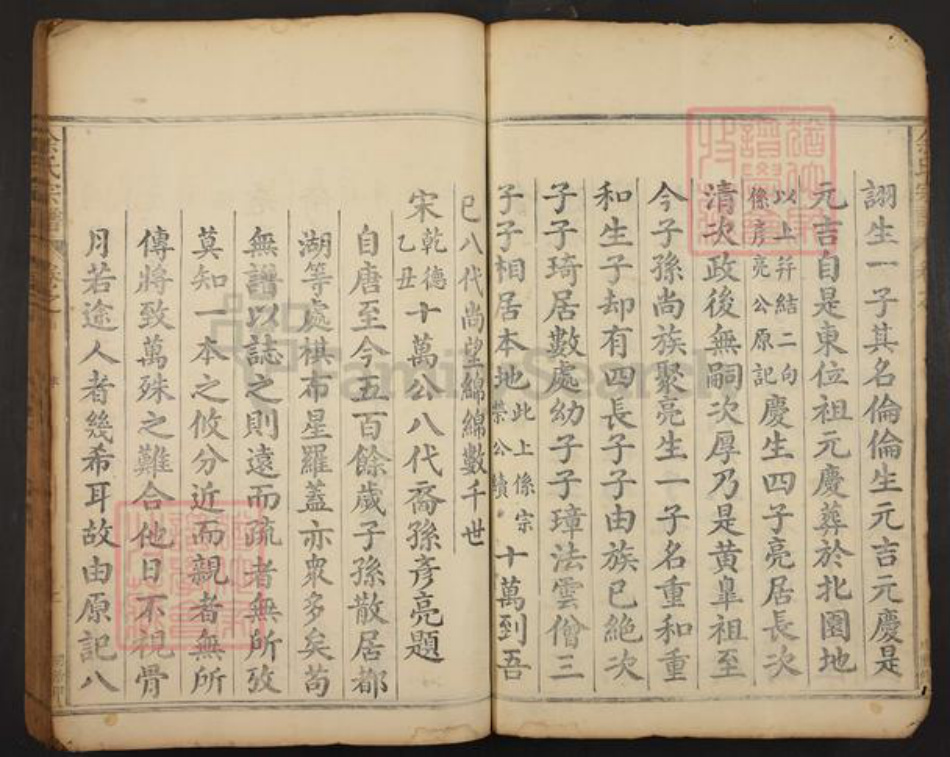 詡生一子其名倫倫生元吉元慶是
元吉自是東位祖元慶葬於北園地
以上幷結二向
係彥亮公原記
慶生四子亮居長次
清次政後無嗣次厚乃是黃皐祖至
今子孫尚族聚亮生一子名重和重
和生子却有四長子子由族已絶次
子子琦居數處幼子子璋法雲僧三
子子相居本地
此上係宗
榮公續
十萬到吾
已八代尚望綿綿數千世
宋
乾德
乙丑
十萬公八代裔孫彥亮題
自唐至今五百餘歲子孫散居都
湖等處棋布星羅蓋亦衆多矣苟
無譜以誌之則遠而疏者無所攷
莫知一本之攸分近而親者無所
傳將致萬殊之難合他日不視骨
月若途人者幾希耳故由原記八
余氏宗譜
Family Search